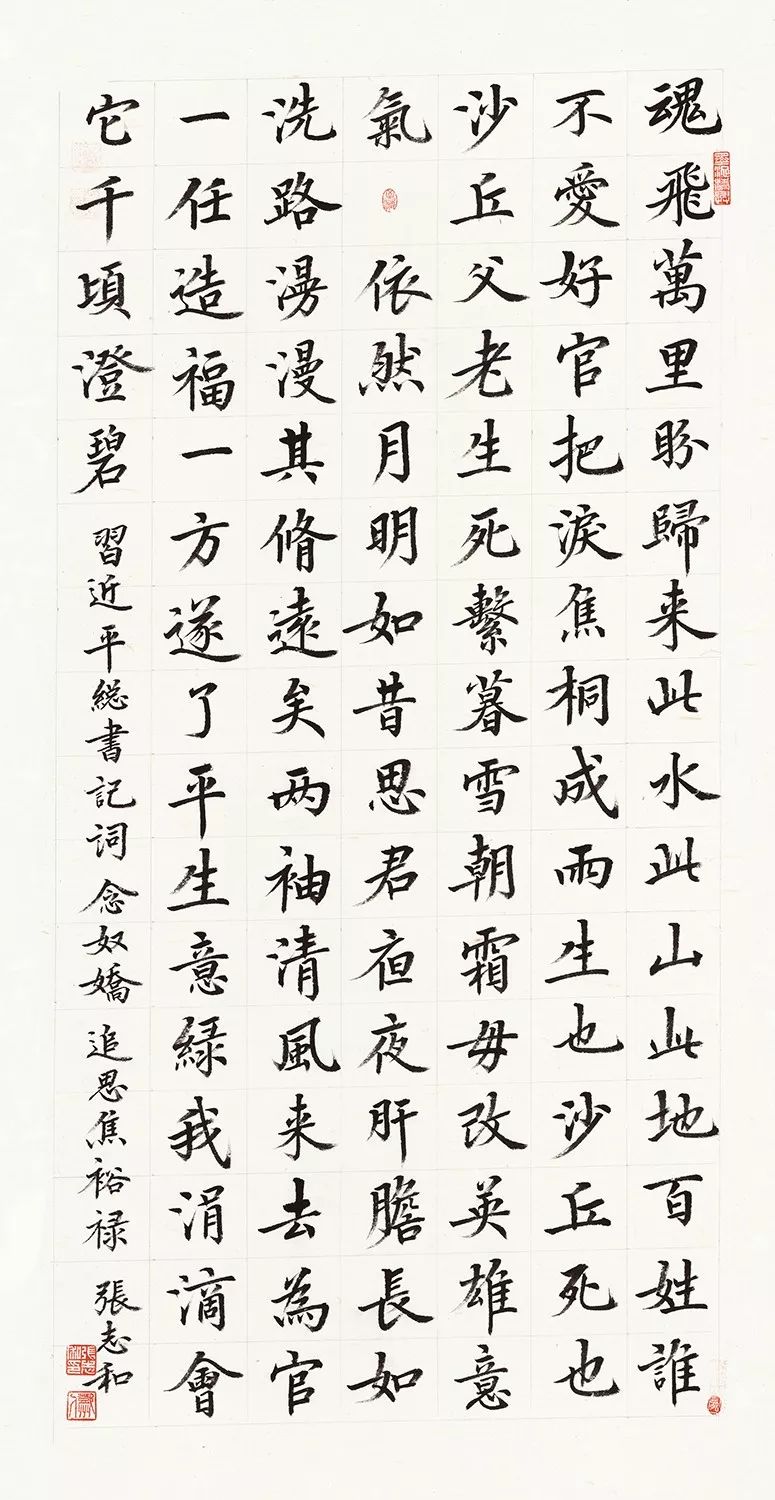 魂飛萬里盼歸来此水此山此地百姓誰
不愛好官把淚焦桐成雨生也沙丘死也
沙丘父老生死繫暮雪朝霜毋改英雄意
氣 依然月明如昔思君夜夜肝膽長如
洗路漫漫其脩遠矣两袖清風来去為官
一任造福一方遂了平生意緑我涓滴會
它千頃澄碧
習近平総書記詞念奴嬌 追思焦裕禄 張志和